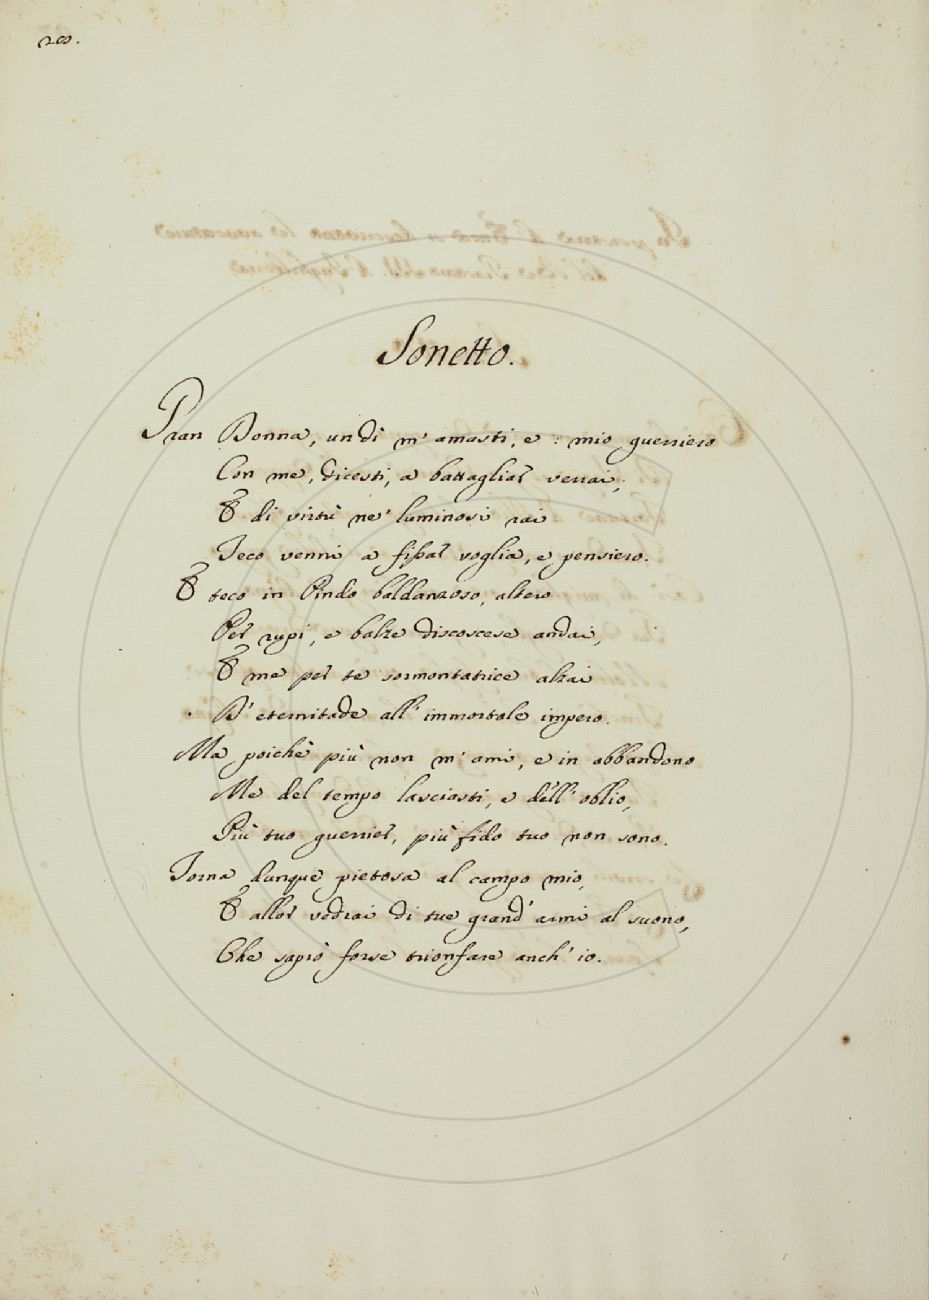 200.
Sonetto.
Gran Donna, un dì m' amasti, e : mio guerriero
Con me, dicesti, a battagliar verrai;
E di virtù ne' luminosi rai
Teco venni a fissar voglia, e pensiero.
E teco in Pindo baldanzoso, altero
Per rupi, e balze discoscese andai,
E me per te sormontatrice alzai
D' eternitade all' immortale impero.
Ma poichè più non m' ami, e in abbandono
Me del tempo lasciasti, e dell' oblio,
Più tuo guerrier, più fido tuo non sono.
Torna dunque pietosa al campo mio,
E allor vedrai di tue grand' armi al suono,
Che saprò forse trionfare anch' io.